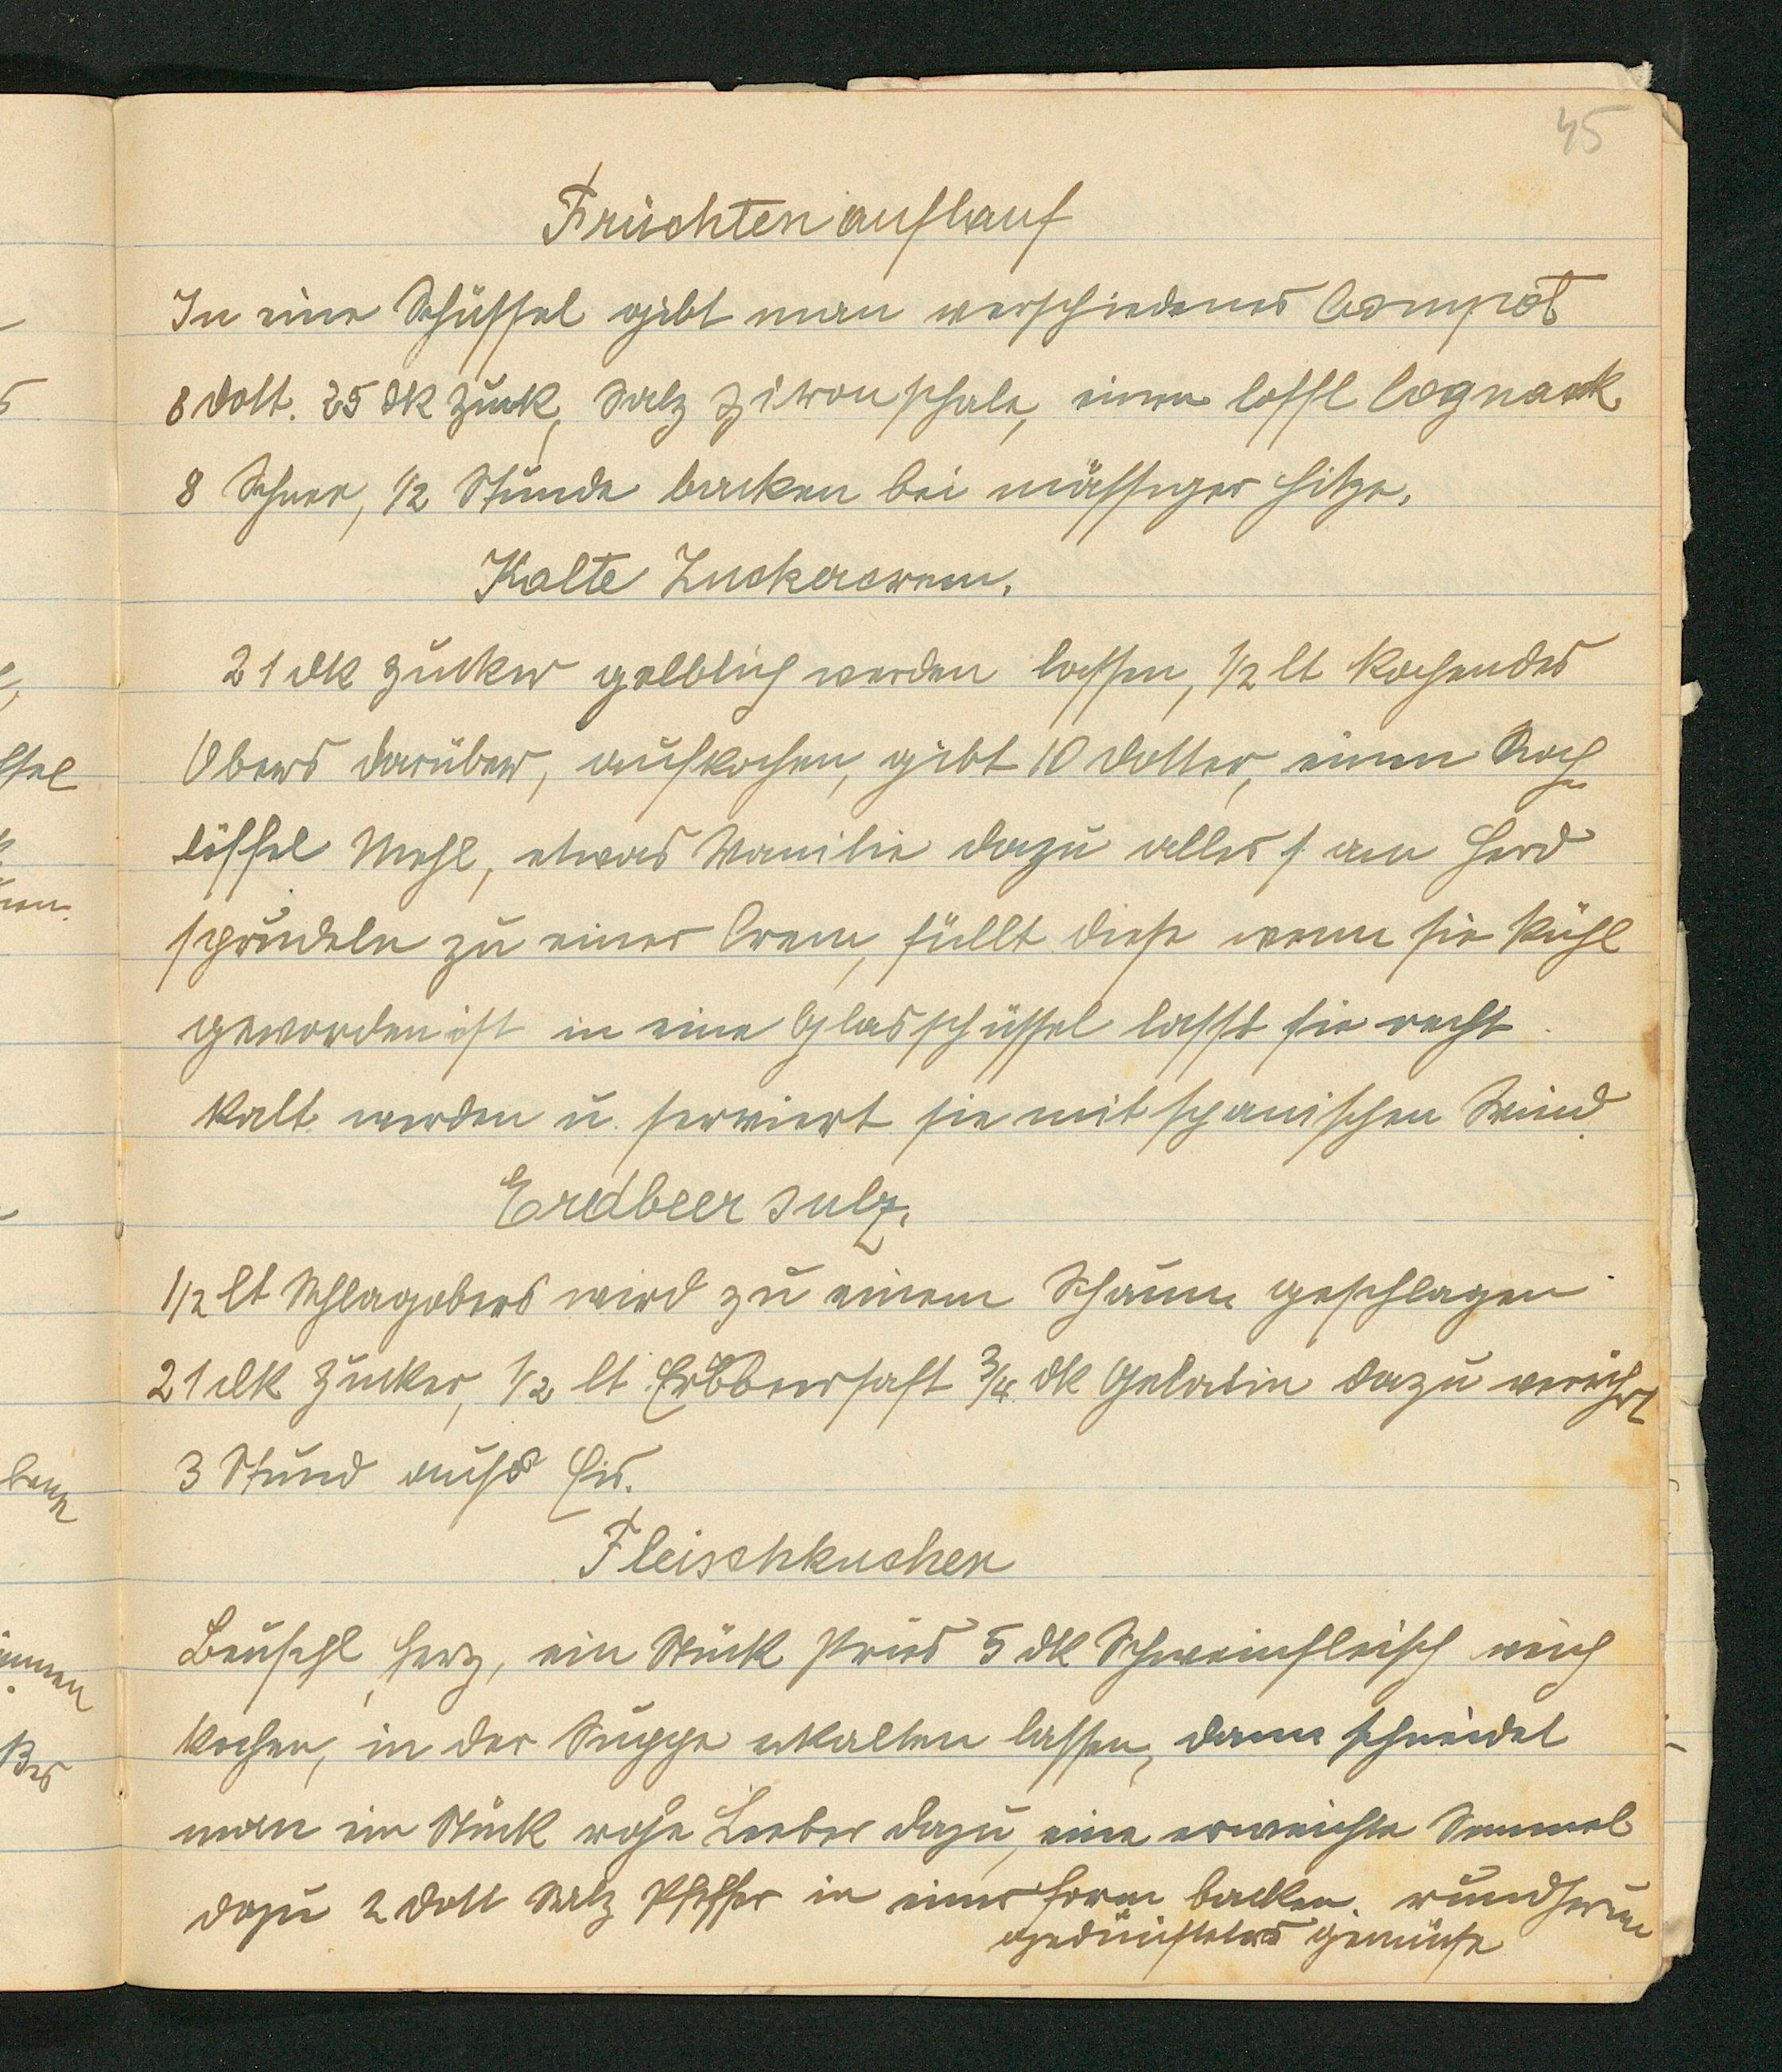 45
Früchtenauflauf
In eine Schüssel gibt man verschiedenes Compot
8 Dott. 25 dk Zuck, Salz Zitronschale, einen Löffl Cognack
8 Schnee, 1/2 Stunde backen bei mässiger Hitze.
Kalte Zuckercrem.
21 dk Zucker gelblich werden lassen, 1/2 lt kochendes
Obers darüber, aufkochen, gibt 10 Dotter, einen Koch
löffel Mehl, etwas Vanilie dazu alles am Herd
sprudeln zu einer Crem, füllt diese wenn sie kühl
geworden ist in eine Glasschüssel lasst sie recht
kalt werden u. serviert sie mit spanischen Wind.
Erdbeersulz.
1/2 lt Schlagobers wird zu einem Schaum geschlagen
21 dk Zucker, 1/2 lt Erdbeersaft 3/4 dk Gelatin dazu verührt
3 Stund aufs Eis.
Fleischkuchen
Beuschl, Herz, ein Stück Pries 5 dk Schweinfleisch weich
kochen, in der Suppe erkalten lassen, dann schneidet
man ein Stück rohe Leeber dazu, eine erweichte Semmel
dazu 2 Dott Salz Pfeffer in einer Form backen. rundherum
gedünstetes Gemüse